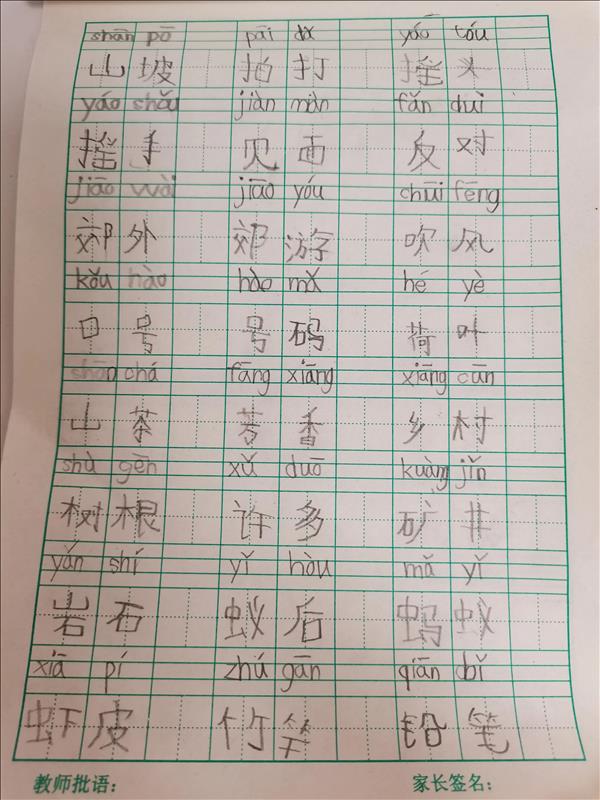 shān pō pāi dǎ yáo tóu
山 坡 拍 打 摇 头
yáo shǒu jiàn miàn fǎn duì
摇 手 见 面 反 对
jiāo wài jiāo yóu chuī fēng
郊 外 郊 游 吹 风
kǒu hào hào mǎ hé yè
口 号 号 码 荷 叶
shān chá fāng xiāng xiāng cūn
山 茶 芳 香 乡 村
shù gēn xǔ duō kuàng jǐn
树 根 许 多 矿 井
yán shí yǐ hòu mǎ yǐ
岩 石 蚁 后 蚂 蚁
xiā pí zhú gān qiān bǐ
虾 皮 竹 竿 铅 笔
教师批语： 家长签名：